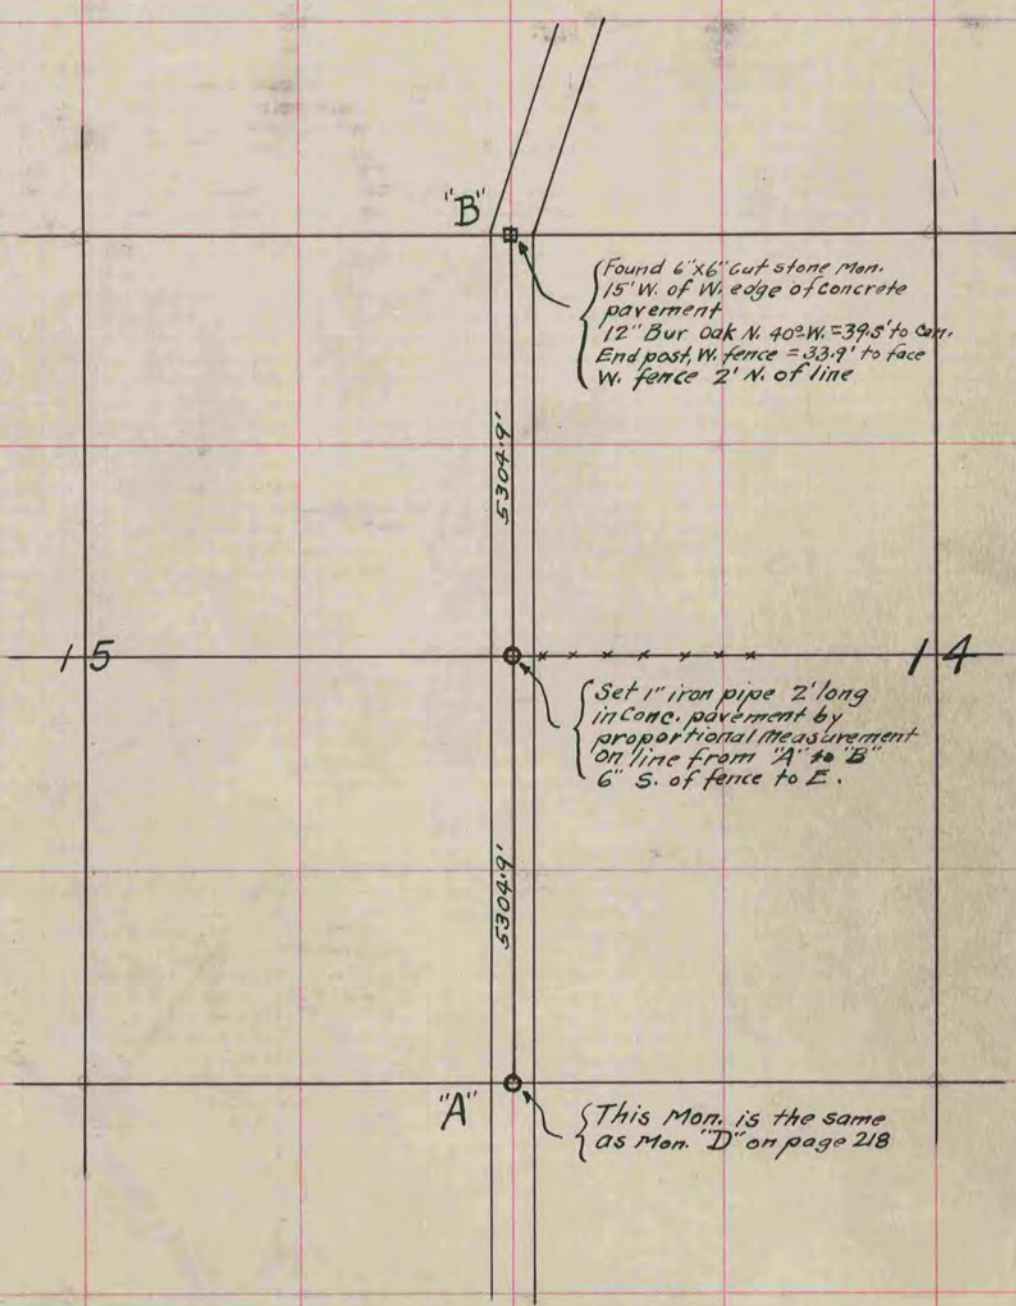 "B"
Found 6"x6" cut stone Mon.
15' W. of W. edge of concrete
pavement
12" Bur Oak N. 40° W. = 39.5' to Cen.
End post, W. fence = 33.9' to face
W. fence 2' N. of line
5304.9'
15
14
Set 1" iron pipe 2' long
in Conc. pavement by
proportional measurement
on line from "A" to "B"
6" S. of fence to E.
5304.9'
"A"
This Mon. is the same
as Mon. "D" on page 218